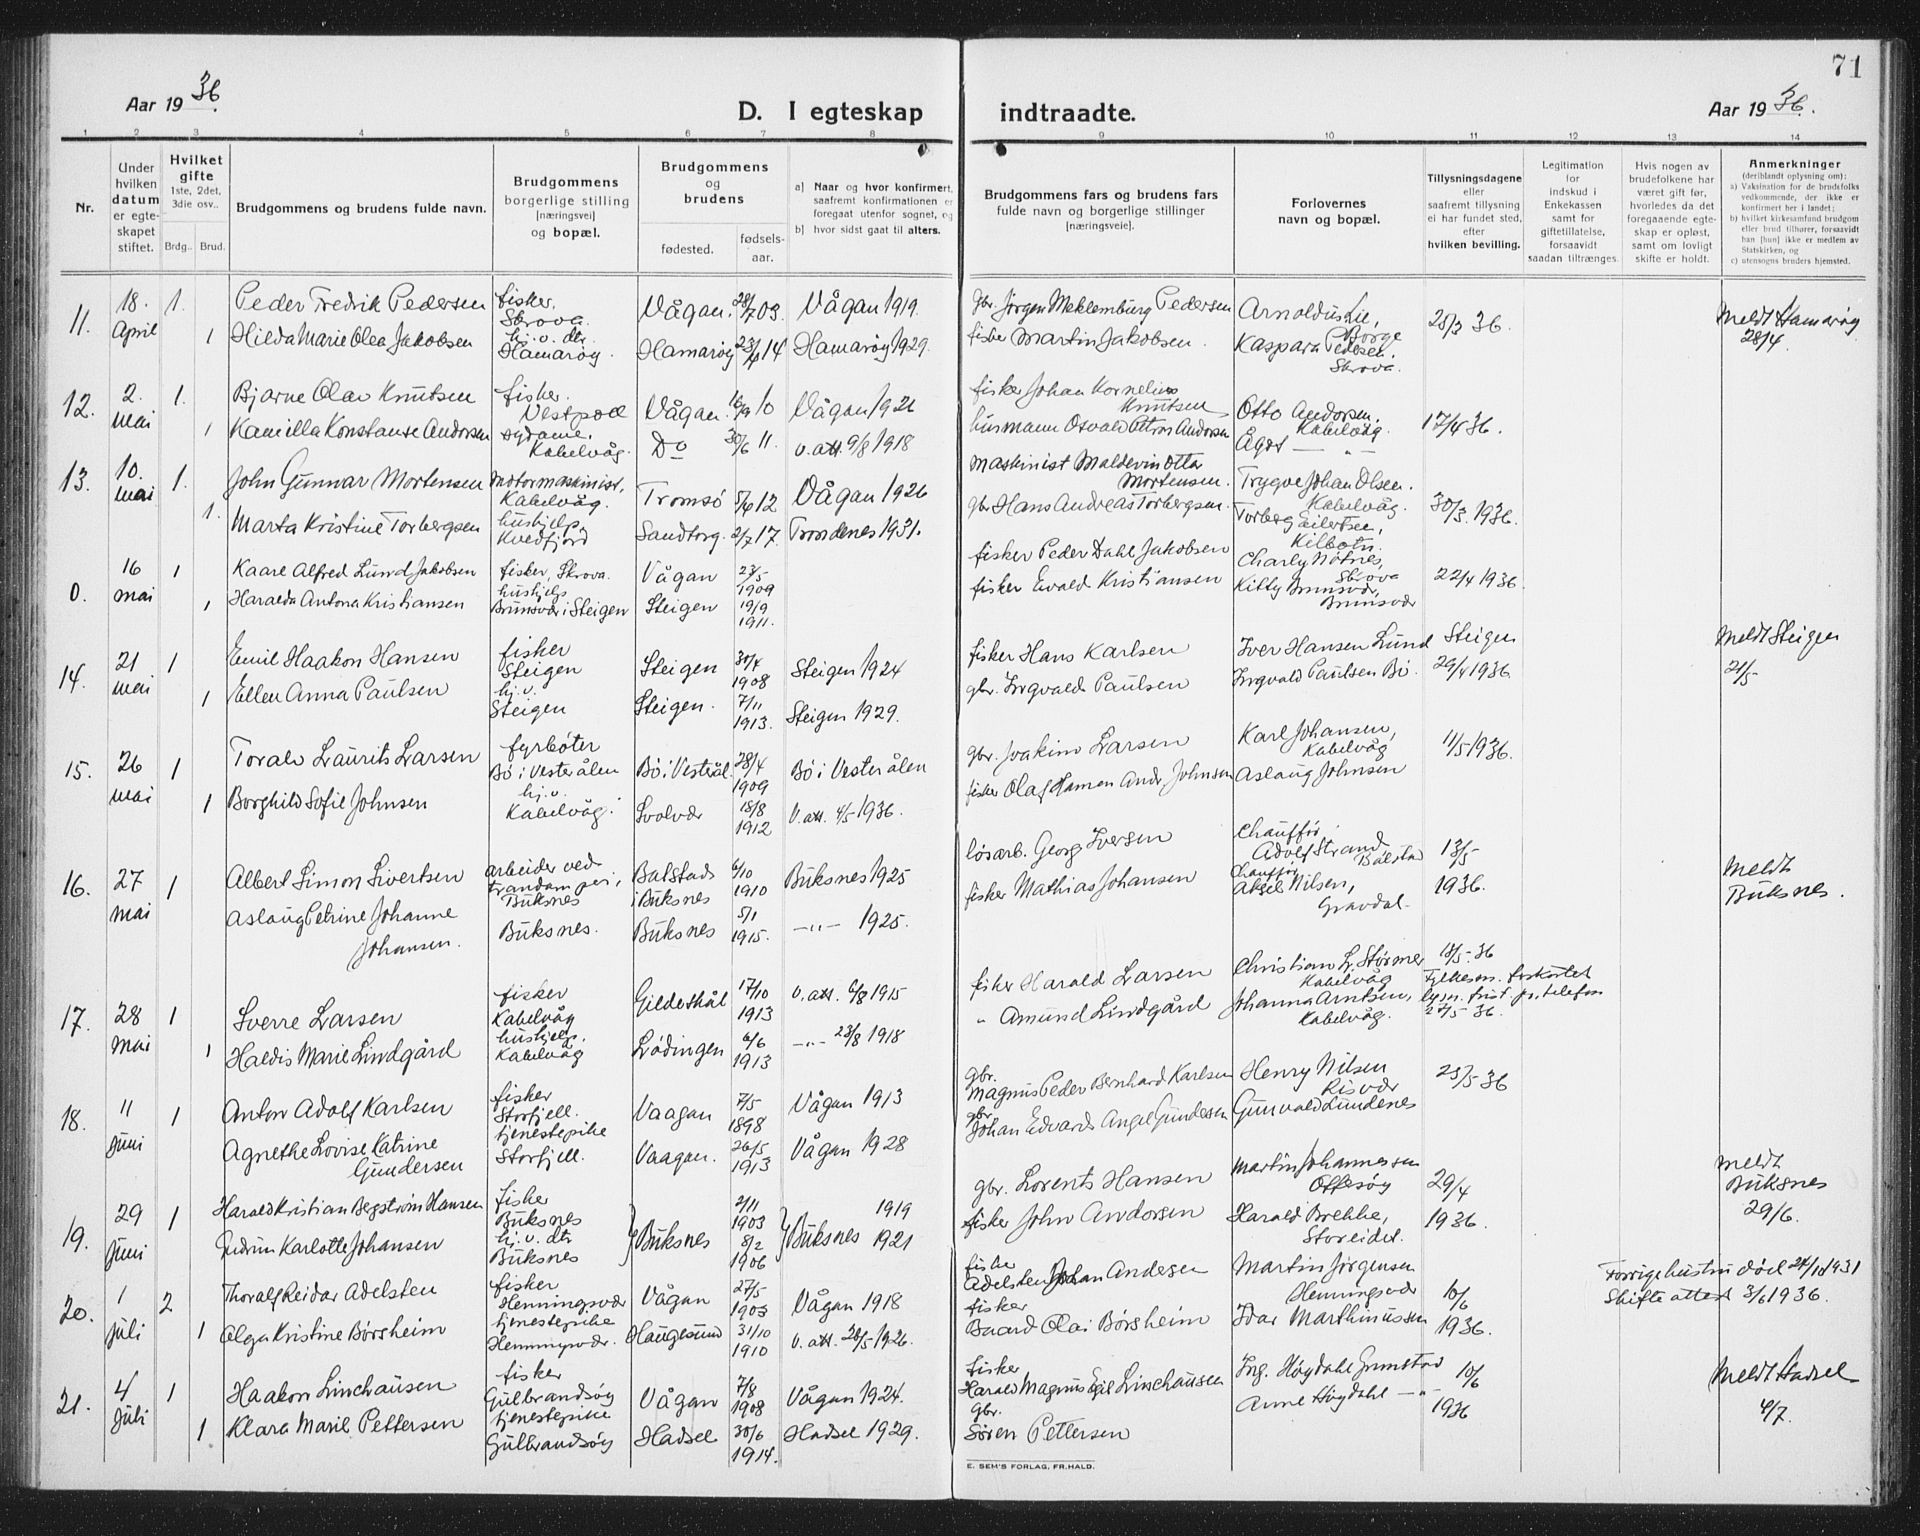 71
Aar 1936.
D. I egteskap indtraadte.
Aar 1936.
1 2 3 4 5 6 7 8 9 10 11 12 13 14
Nr.
Under hvilken datum er egteskapet stiftet.
Hvilket gifte 1ste, 2det, 3die osv..
Brdg.. Brud.
Brudgommens og brudens fulde navn.
Brudgommens borgerlige stilling [næringsvei] og bopæl.
Brudgommens og brudens
fødested.
fødsels-aar.
a] Naar og hvor konfirmert, saafremt konfirmationen er foregaat utenfor sognet, og
b] hvor sidst gaat til alters.
Brudgommens fars og brudens fars fulde navn og borgerlige stillinger [næringsveie].
Forlovernes navn og bopæl.
Tillysningsdagene eller saafremt tillysning ei har fundet sted, efter hvilken bevilling.
Legitimation for indskud i Enkekassen samt for giftetillatelse, forsaavidt saadan tiltrænges.
Hvis nogen av brudefolkene har været gift før, hvorledes da det foregaaende egteskap er opløst, samt om lovlig skifte er holdt.
Anmerkninger (deriblandt oplysning om):
a) Vaksination for de brudsfolks vedkommende, der ikke er konfirmert her i landet;
b) hvilket kirkesamfund brudgom eller brud tilhører, forsaavidt han [hun] ikke er medlem av Statskirken, og
c) utensogns bruders hjemsted.
11. 18. April 1. Peder Fredrik Pedersen fisker. Skrova. Vågan. 28/7 03. Vågan 1919. gbr. Jørgen Meklemburg Pedersen Arnoldus Lie, Borge 25/3 36. Meldt Hamarøy 28/4.
1 Hilda Marie Olea Jakobsen hj.v. dtr. Hamarøy. Hamarøy 23/4 14 Hamarøy 1929. fisker Martin Jakobsen. Kaspara Pedersen. Skrova.
12. 2. mai 1. Bjarne Olav Knutsen fisker. Vestpoll Vågan. 10 Vågan 1926 fisker Johan Kornelius Knutsen Otto Andorsen. Kabelvåg. 17/4 36.
1 Kamilla Konstanse Andorsen sydame. Kabelvåg. Do 30/6 11. v. att. 9/8 1918 husmann Osvald Petrus Andorsen Ågot — " —
13. 10. mai 1. John Gunnar Mortensen motormaskinist, Kabelvåg. Tromsø 5/6 12 Vågan 1926 maskinist Maldevin Otto Mortensen. Trygve Johan Olsen. Kabelvåg. 30/3. 1936.
1. Marta Kristine Torbergsen hushjelp, Kvedfjord Sandtorg. 2/7 17. Trondenes 1931. gbr Hans Andreas Torbergsen. Torberg Eilertsen, Kilbotn.
0. 16 mai 1 Kaare Alfred Lund Jakobsen fisker, Skrova. Vågan 23/5 1909 fisker Peder Dahl Jakobsen Charly Nøtnes, Skrova 22/4 1936.
1 Haralda Antona Kristiansen hushjelp Brunsvær i Steigen Steigen 19/9 1911. fisker Evald Kristiansen Kitty Brunsvær, Brunsvær
14. 21 mai 1 Emil Haakon Hansen fisker Steigen Steigen 30/4 1908 Steigen 1924 fisker Hans Karlsen Iver Hansen Lund Steigen 29/4 1936 Meldt Steigen 21/5
1 Ellen Anna Paulsen hj.v. Steigen Steigen. 7/11 1913. Steigen 1929. gbr. Ingvald Paulsen Ingvald Paulsen Bø.
15. 26 mai 1 Toralv Laurits Larsen fyrbøter Bø i Vesterålen Bø i Vesterål. 28/4 1909 Bø i Vesterålen gbr. Joakim Larsen Karl Johansen, Kabelvåg 11/5 1936.
1 Borghild Sofie Johnsen hj.v. Kabelvåg. Svolvær 18/8 1912 V. att. 4/5 1936. fisker Olaf Hamen Andr. Johnsen Aslaug Johnsen
16. 27 mai 1 Albert Simon Sivertsen arbeider ved trandamperi, Buksnes Balstads i Buksnes 6/10 1910 Buksnes 1925 løsarb. Georg Iversen Chauffør Adolf Strand Balstad 13/5 1936. Meldt Buksnes.
Aslaug Petrine Johanne Johansen. Buksnes. Buksnes 5/1 1915. — " — 1925. fisker Mathias Johansen Chauffør Aksel Nilsen, Gravdal.
17. 28 mai 1 Sverre Larsen fisker Kabelvåg Gildeskål 17/10 1913 v. att. 6/8 1915 fisker Harald Larsen Christian L. Størmer Kabelvåg 18/5 - 36 Fylkesm. forkortet lysn. frist pr. telefon 27/5 36.
1 Haldis Marie Lindgård hushjelp. Kabelvåg Lødingen 6/6 1913 — " — 23/8 1918 " Amund Lindgård Johanna Arntsen, Kabelvåg.
18. 11 juni 1 Anton Adolf Karlsen fisker Storfjell. Vaagan 7/5 1898 Vågan 1913 gbr. Magnus Peder Bernhard Karlsen Henry Nilsen Risvær 25/5 36
Agnethe Lovise Katrine Gundersen tjenestepike Storfjell. Vaagan. 26/5 1913 Vågan 1928 gbr Johan Edvard Angel Gundersen Gunvald Lundenes
19. 29 juni 1 Harald Kristian Bergstrøm Hansen fisker Buksnes Buksnes 2/11 1903 Buksnes 1919 gbr. Lorents Hansen Martin Johannessen Offersøy 29/4 1936. Meldt Buksnes 29/6.
Gudrun Karlotte Johansen hj.v. dtr Buksnes 8/2 1906 1921 fisker John Andorsen Harald Brekke, Storeidet.
20. 1 juli 2 Thoralf Reidar Adelsten fisker Henningsvær Vågan 27/5 1903 Vågan 1918 fisker Adelsten Johan Andesen Martin Jørgensen Henningsvær 10/6 1936. Forrige hustru død 24/10 1931 Skifteattest 3/6 1936.
1 Olga Kristine Børsheim tjenestepike Henningsvær. Haugesund 31/10 1910 v. att. 28/5 1926. fisker Baard Olai Børsheim Idar Marthinussen
21. 4 juli 1 Haakon Linchausen fisker Gulbrandsøy Vågan 7/8 1908 Vågan 1924. fisker Harald Magnus Egil Linchausen Ing. Høydahl Grimstad 10/6 1936 Meldt Hadsel 4/7.
1 Klara Marie Pettersen tjenestepike Gulbrandsøy Hadsel 30/6 1914. Hadsel 1929. gbr. Søren Pettersen Anne Høydahl — " —
E. SEM'S FORLAG, FR.HALD.